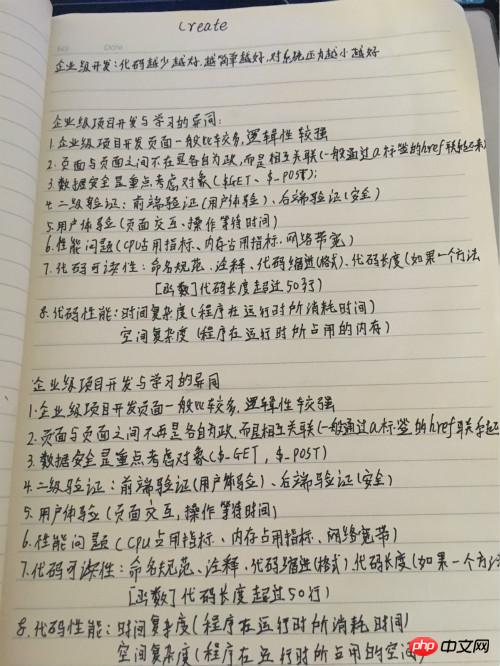 Create
NO.
Date
企业级开发:代码越少越好,越简单越好,对系统压力越小越好
企业级项目开发与学习的异同:
1.企业级项目开发页面一般比较多,逻辑性较强
2.页面与页面之间不在是各自为政,而是相互关联(一般通过a标签的href联系起来)
3.数据安全是重点考虑对象($GET、$_POST);
4.二级验证:前端验证(用户体验)、后端验证(安全)
5.用户体验(页面交互、操作等待时间)
6.性能问题(CPU占用指标、内存占用指标、网络带宽)
7.代码可读性:命名规范、注释、代码缩进(格式)、代码长度(如果一个方法
[函数]代码长度超过50行)
8.代码性能:时间复杂度(程序在运行时所消耗时间)
空间复杂度(程序在运行时所占用的内存)
企业级项目开发与学习的异同
1.企业级项目开发页面一般比较多,逻辑性较强
2.页面与页面之间不再是各自为政,而且相互关联(一般通过a标签的href联系起
3.数据安全是重点考虑对象($_GET,$_POST)
4.二级验证:前端验证(用户体验)、后端验证(安全)
5.用户体验(页面交互,操作等待时间)
6.性能问题(CPU占用指标、内存占用指标、网络宽带)
7.代码可读性:命名规范、注释、代码缩进(格式)、代码长度(如果一个方法
[函数]代码长度超过50行)
8.代码性能:时间复杂度(程序在运行时消耗时间)
空间复杂度(程序在运行时所占用的空间)
php中文网